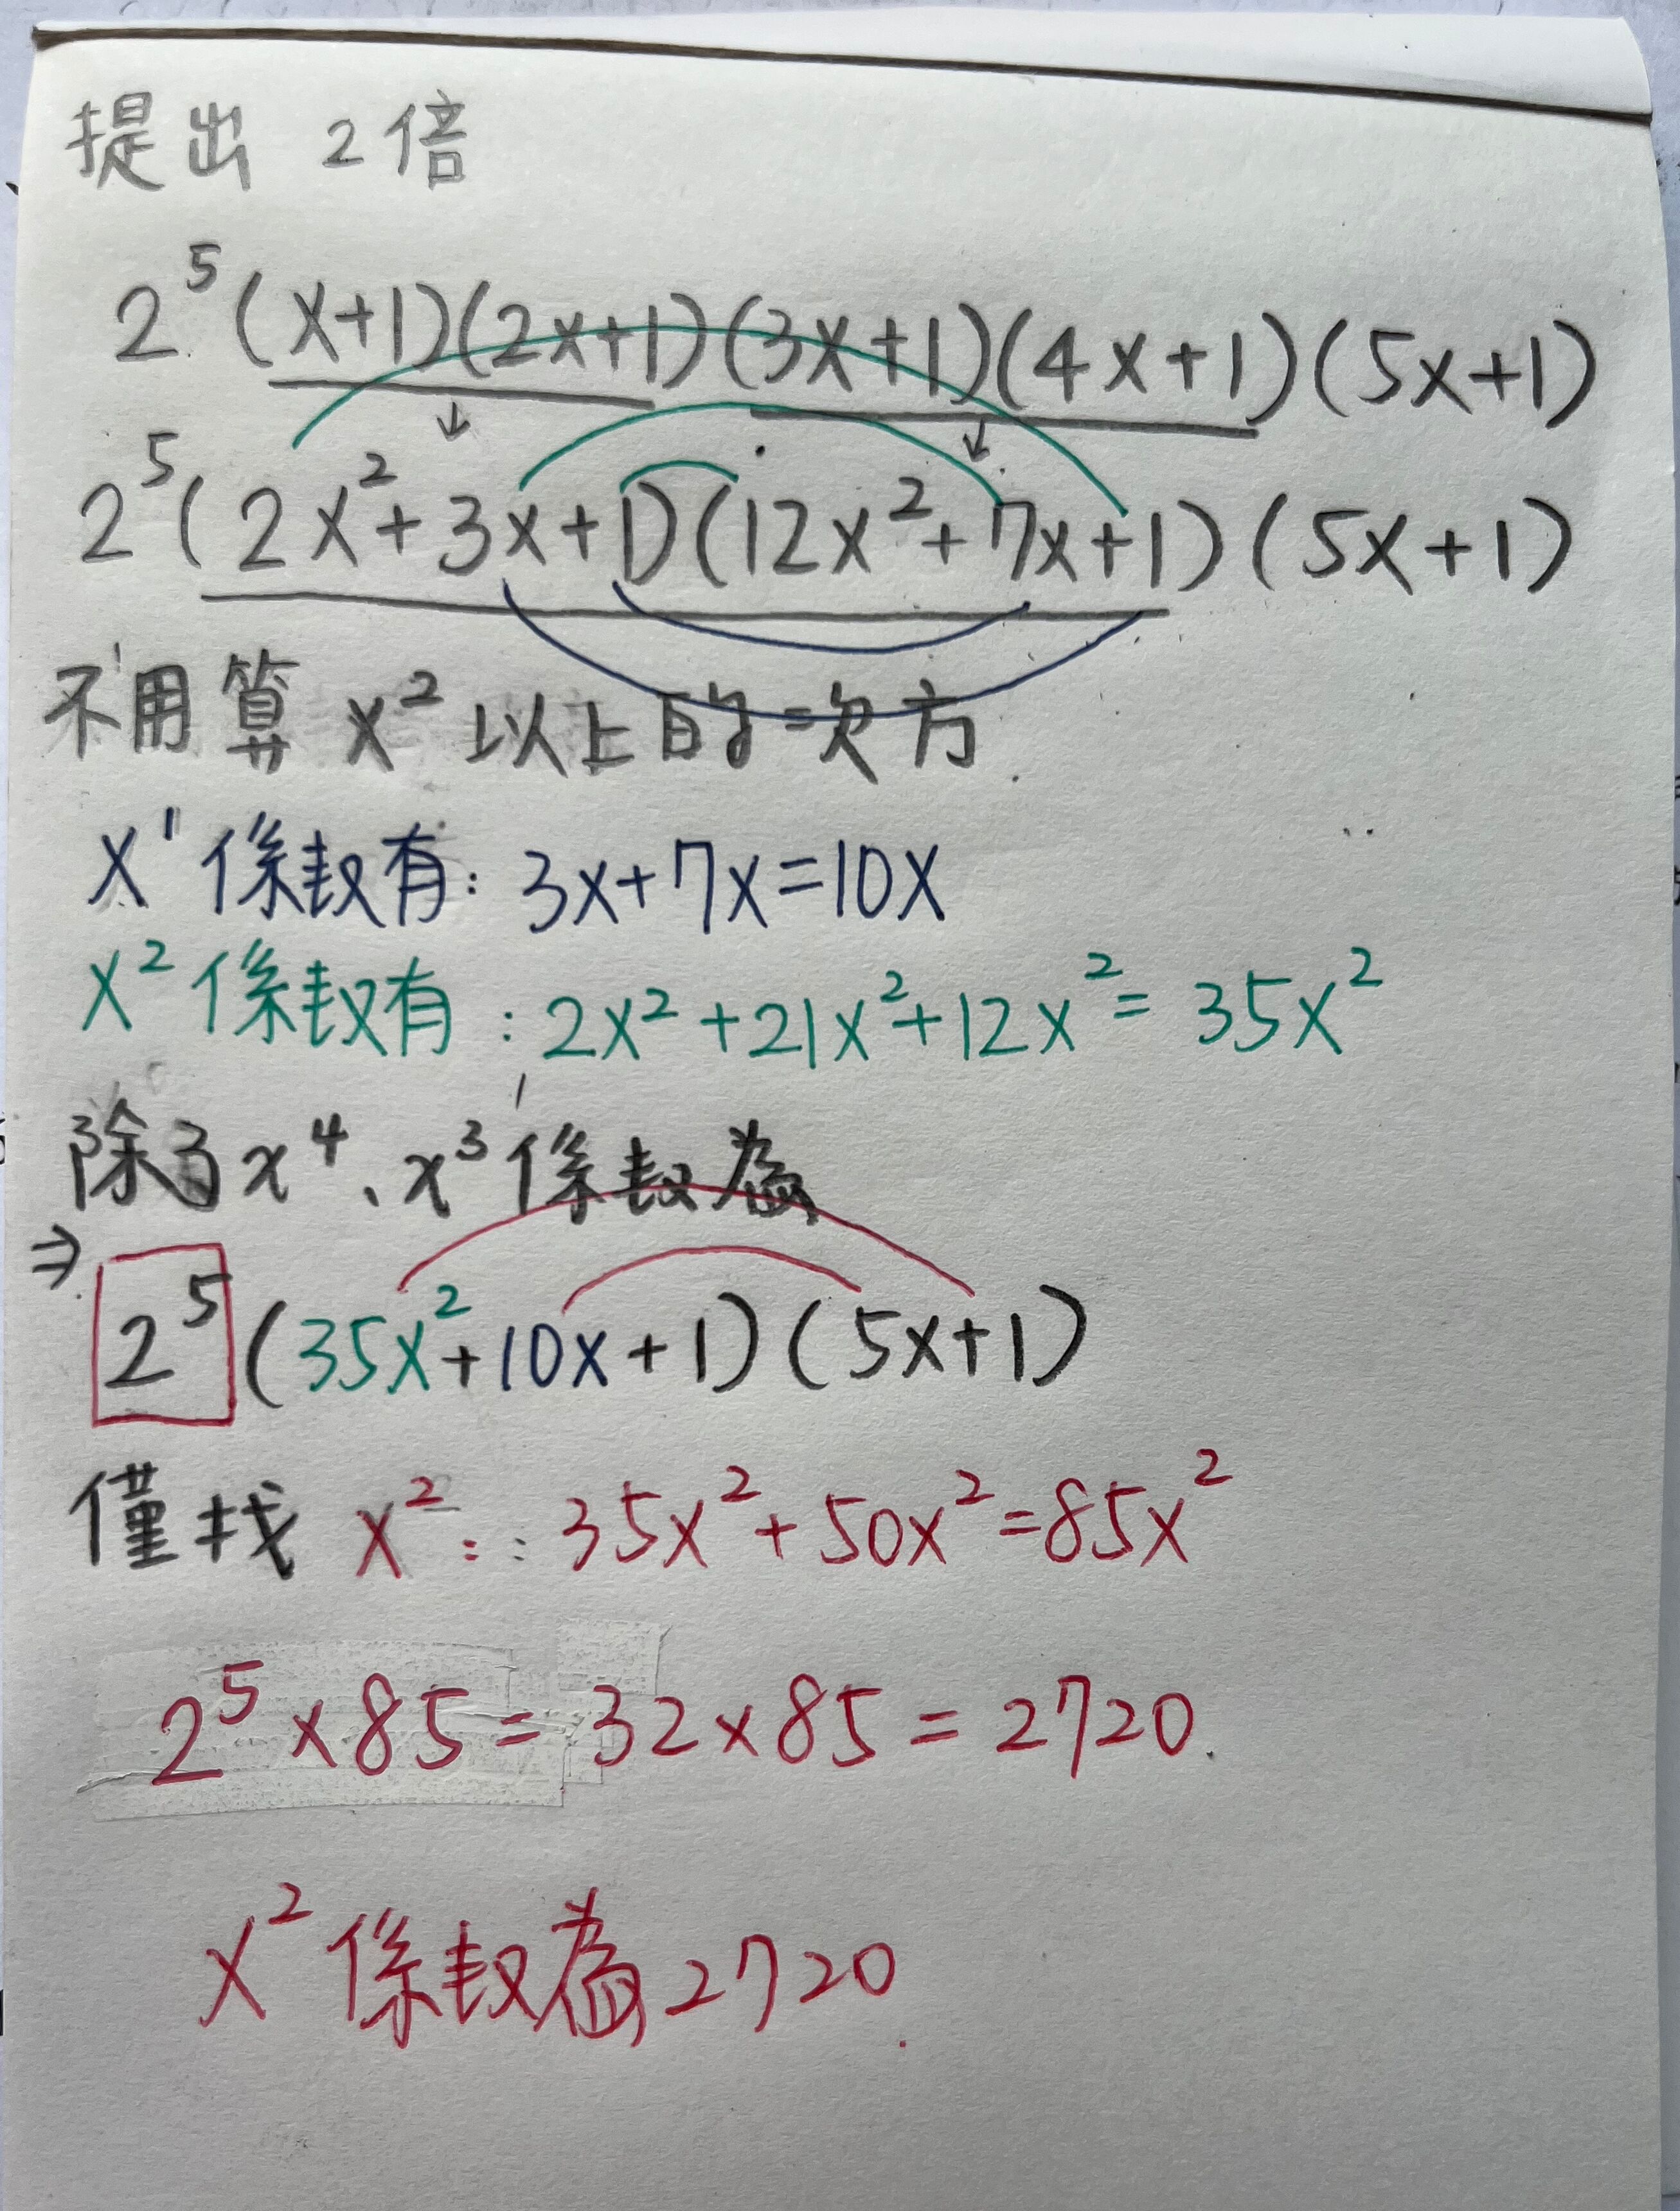 提出 2倍
2⁵(x+1)(2x+1)(3x+1)(4x+1)(5x+1)
↓ ↓
2⁵(2x²+3x+1)(12x²+7x+1)(5x+1)
不用算 x² 以上的次方
x¹係數有: 3x+7x=10x
x²係數有: 2x²+21x²+12x²=35x²
除了x⁴、x³係數為
⇒ 2⁵(35x²+10x+1)(5x+1)
僅找 x²: 35x²+50x²=85x²
2⁵×85=32×85=2720.
x²係數為2720.